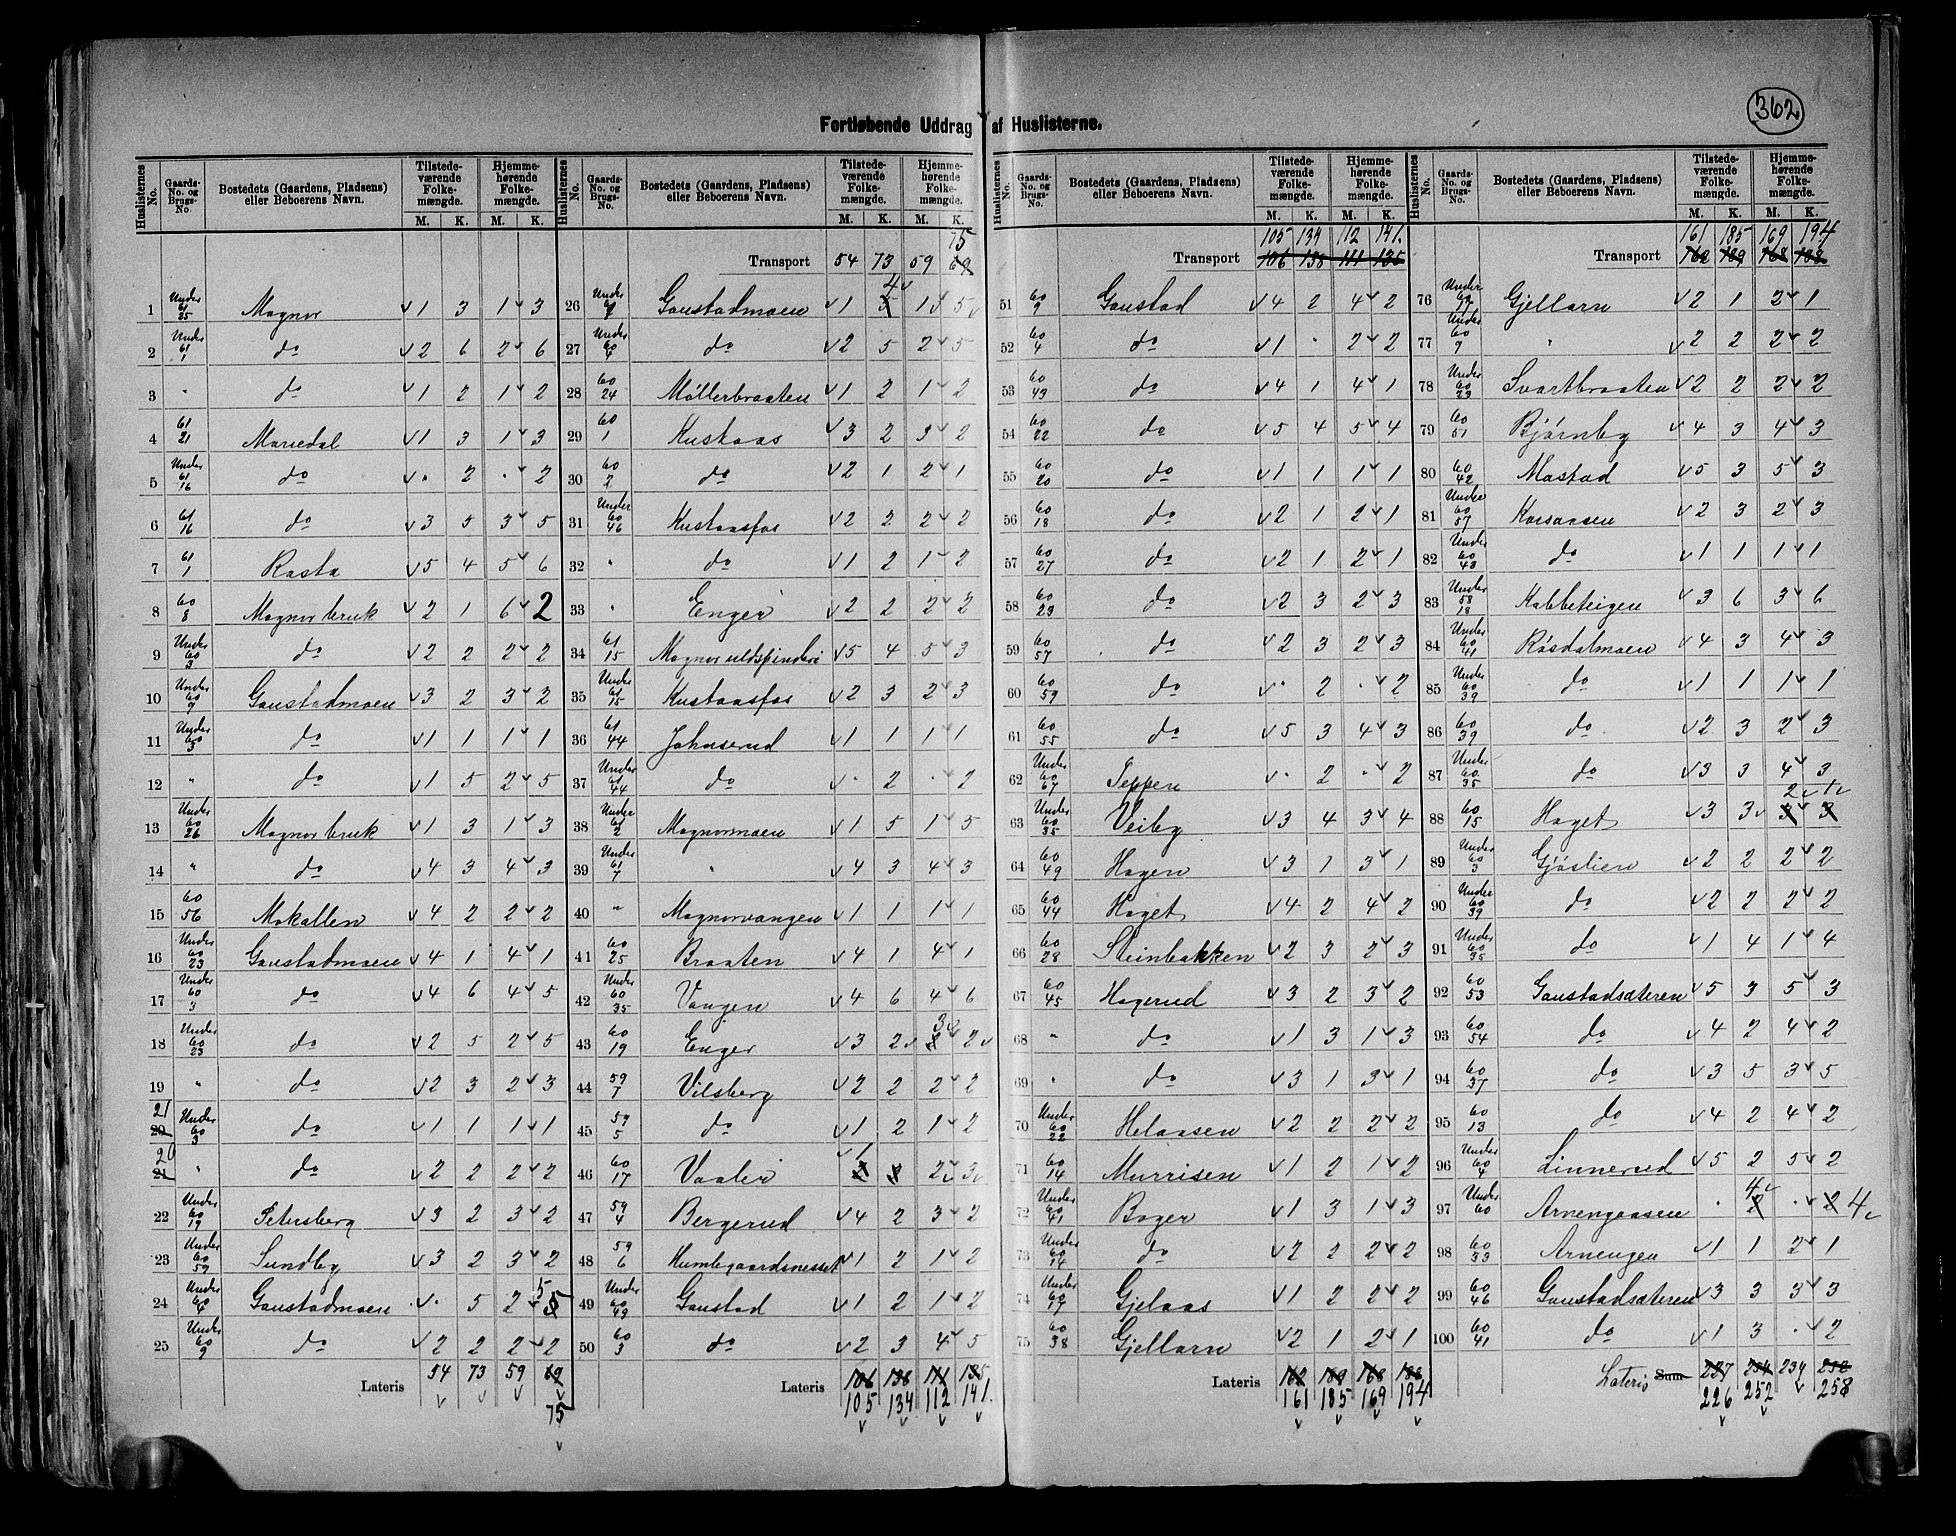 362
Fortløbende Uddrag af Huslisterne.
Huslisternes No. Gaards-No. og Brugs-No. Bostedets (Gaardens, Pladsens) eller Beboerens Navn. Tilstedeværende Folkemængde. M. K. Hjemmehørende Folkemængde. M. K.
1 Under 61/35 Magnor 1 3 1 3
2 Under 61/1 do 2 6 2 6
3 " do 1 2 1 2
4 61/21 Mariedal 1 3 1 3
5 Under 61/16 do . 2 . 2
6 61/16 do 3 5 3 5
7 61/1 Rasta 5 4 5 6
8 60/8 Magnor bruk 2 1 6 2
9 Under 60/3 do 2 2 2 2
10 Under 60/9 Gaustadmoen 3 2 3 2
11 Under 60/3 do 1 1 1 1
12 " do 1 5 2 5
13 Under 60/26 Magnor bruk 1 3 1 3
14 " do 4 3 4 3
15 60/56 Mokallen 4 2 2 2
16 Under 60/23 Gaustadmoen 4 1 4 1
17 Under 60/3 do 4 6 4 5
18 Under 60/23 do 2 5 2 5
19 " do 2 3 2 3
21 Under 60/3 do 1 1 1 1
20 " do 2 2 2 2
22 Under 60/19 Petersberg 3 2 3 2
23 Under 60/59 Sundby 3 2 3 2
24 Under 60/4 Gaustadmoen . 5 2 5
25 Under 60/9 do 2 2 2 2
Lateris 54 73 59 69
75
75
Transport 54 73 59 69
26 Under Gaustadmoen 1 4 1 5
27 Under 60/4 do 2 5 2 5
28 60/24 Møllerbraaten 1 2 1 2
29 60/1 Kustaas 3 2 3 2
30 60/2 do 2 1 2 1
31 Under 60/46 Kustaasfos 2 2 2 2
32 " do 1 2 1 2
33 " Enger 2 2 2 2
34 61/15 Magnor uldspinderi 5 4 5 3
35 Under 61/15 Kustaasfos 2 3 2 3
36 61/44 Johnserud 1 1 1 1
37 Under 61/44 do . 2 . 2
38 Under 61/2 Magnormoen 1 5 1 5
39 Under 61/7 " 4 3 4 3
40 " Magnorvangen 1 1 1 1
41 60/25 Braaten 4 1 4 1
42 Under 60/35 Vangen 4 6 4 6
43 60/19 Enger 3 2 3 2
44 59/7 Vilsberg 2 2 2 2
45 59/5 do 1 2 1 2
46 60/17 Vaaler 1 2 3
47 59/4 Bergerud 4 2 3 2
48 59/6 Humlegaardsnesset 1 2 1 2
49 Under 60/49 Gaustad 1 2 1 2
50 60/3 do 2 3 4 5
Lateris 106 136 111 135
105 134 112 141.
105 134 112 141.
Transport 106 138 111 135
51 60/9 Gaustad 4 2 4 2
52 60/4 do 1 . 2 2
53 60/43 do 4 1 4 1
54 60/22 do 5 4 5 4
55 60/20 do 1 1 1 1
56 60/18 do 2 1 2 1
57 60/27 do 2 1 2 1
58 60/23 do 2 3 2 3
59 60/57 do 2 3 2 3
60 60/59 do . 2 . 2
61 60/55 do 5 3 4 3
62 Under 60/67 Teppen . 2 . 2
63 Under 60/35 Veiby 3 4 3 4
64 60/49 Hagen 3 1 3 1
65 60/44 Haget 4 2 4 2
66 60/28 Steinbakken 2 3 2 3
67 60/45 Hagerud 3 2 3 2
68 " do 1 3 1 3
69 " do 3 1 3 1
70 Under 60/22 Helaasen 2 2 2 2
71 60/14 Murrisen 1 2 1 2
72 Under 60/41 Boger 1 3 1 3
73 Under 60/14 do 2 2 2 2
74 Under 60/17 Gjelaas 1 2 2 2
75 60/38 Gjellarn 2 1 2 1
Lateris 162 189 168 188
161 185 169 194
161 185 169 194
Transport 162 189 168 188
76 Under 60/17 Gjellarn 2 1 2 1
77 Under 60/9 " 2 2 2 2
78 Under 60/23 Svartbraaten 2 2 2 2
79 60/51 Bjørnby 4 3 4 3
80 60/42 Mastad 5 3 5 3
81 Under 60/57 Korsaasen 2 3 2 3
82 Under 60/43 do 1 1 1 1
83 Under 58/18 Kabbeteigen 3 6 3 6
84 Under 60/41 Røsdalmoen 4 3 4 3
85 Under 60/39 do 1 1 1 1
86 60/39 do 2 3 2 3
87 Under 60/35 do 3 3 4 3
88 60/15 Haget 3 3 2 1
89 Under 60/3 Gjøslien 2 2 2 2
90 Under 60/39 do 2 2 2 2
91 Under 60/35 do 1 4 1 4
92 60/53 Gaustadsæteren 5 3 5 3
93 60/54 do 4 2 4 2
94 60/37 do 3 5 3 5
95 60/13 do 4 2 4 2
96 Under 60/4 Linnerud 5 2 5 2
97 Under 60 Arnengaasen . 4 . 4
98 60/33 Arnengen 1 1 2 1
99 60/46 Gaustadsæteren 3 3 3 3
100 60/41 do 1 3 . 2
Lateris Sum 227 254 234 252
226 252 258